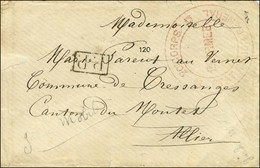 Mademoiselle
Marie Parent au Vernet
120
P.P.
Commune de Cressanges
Canton du Montet
Allier